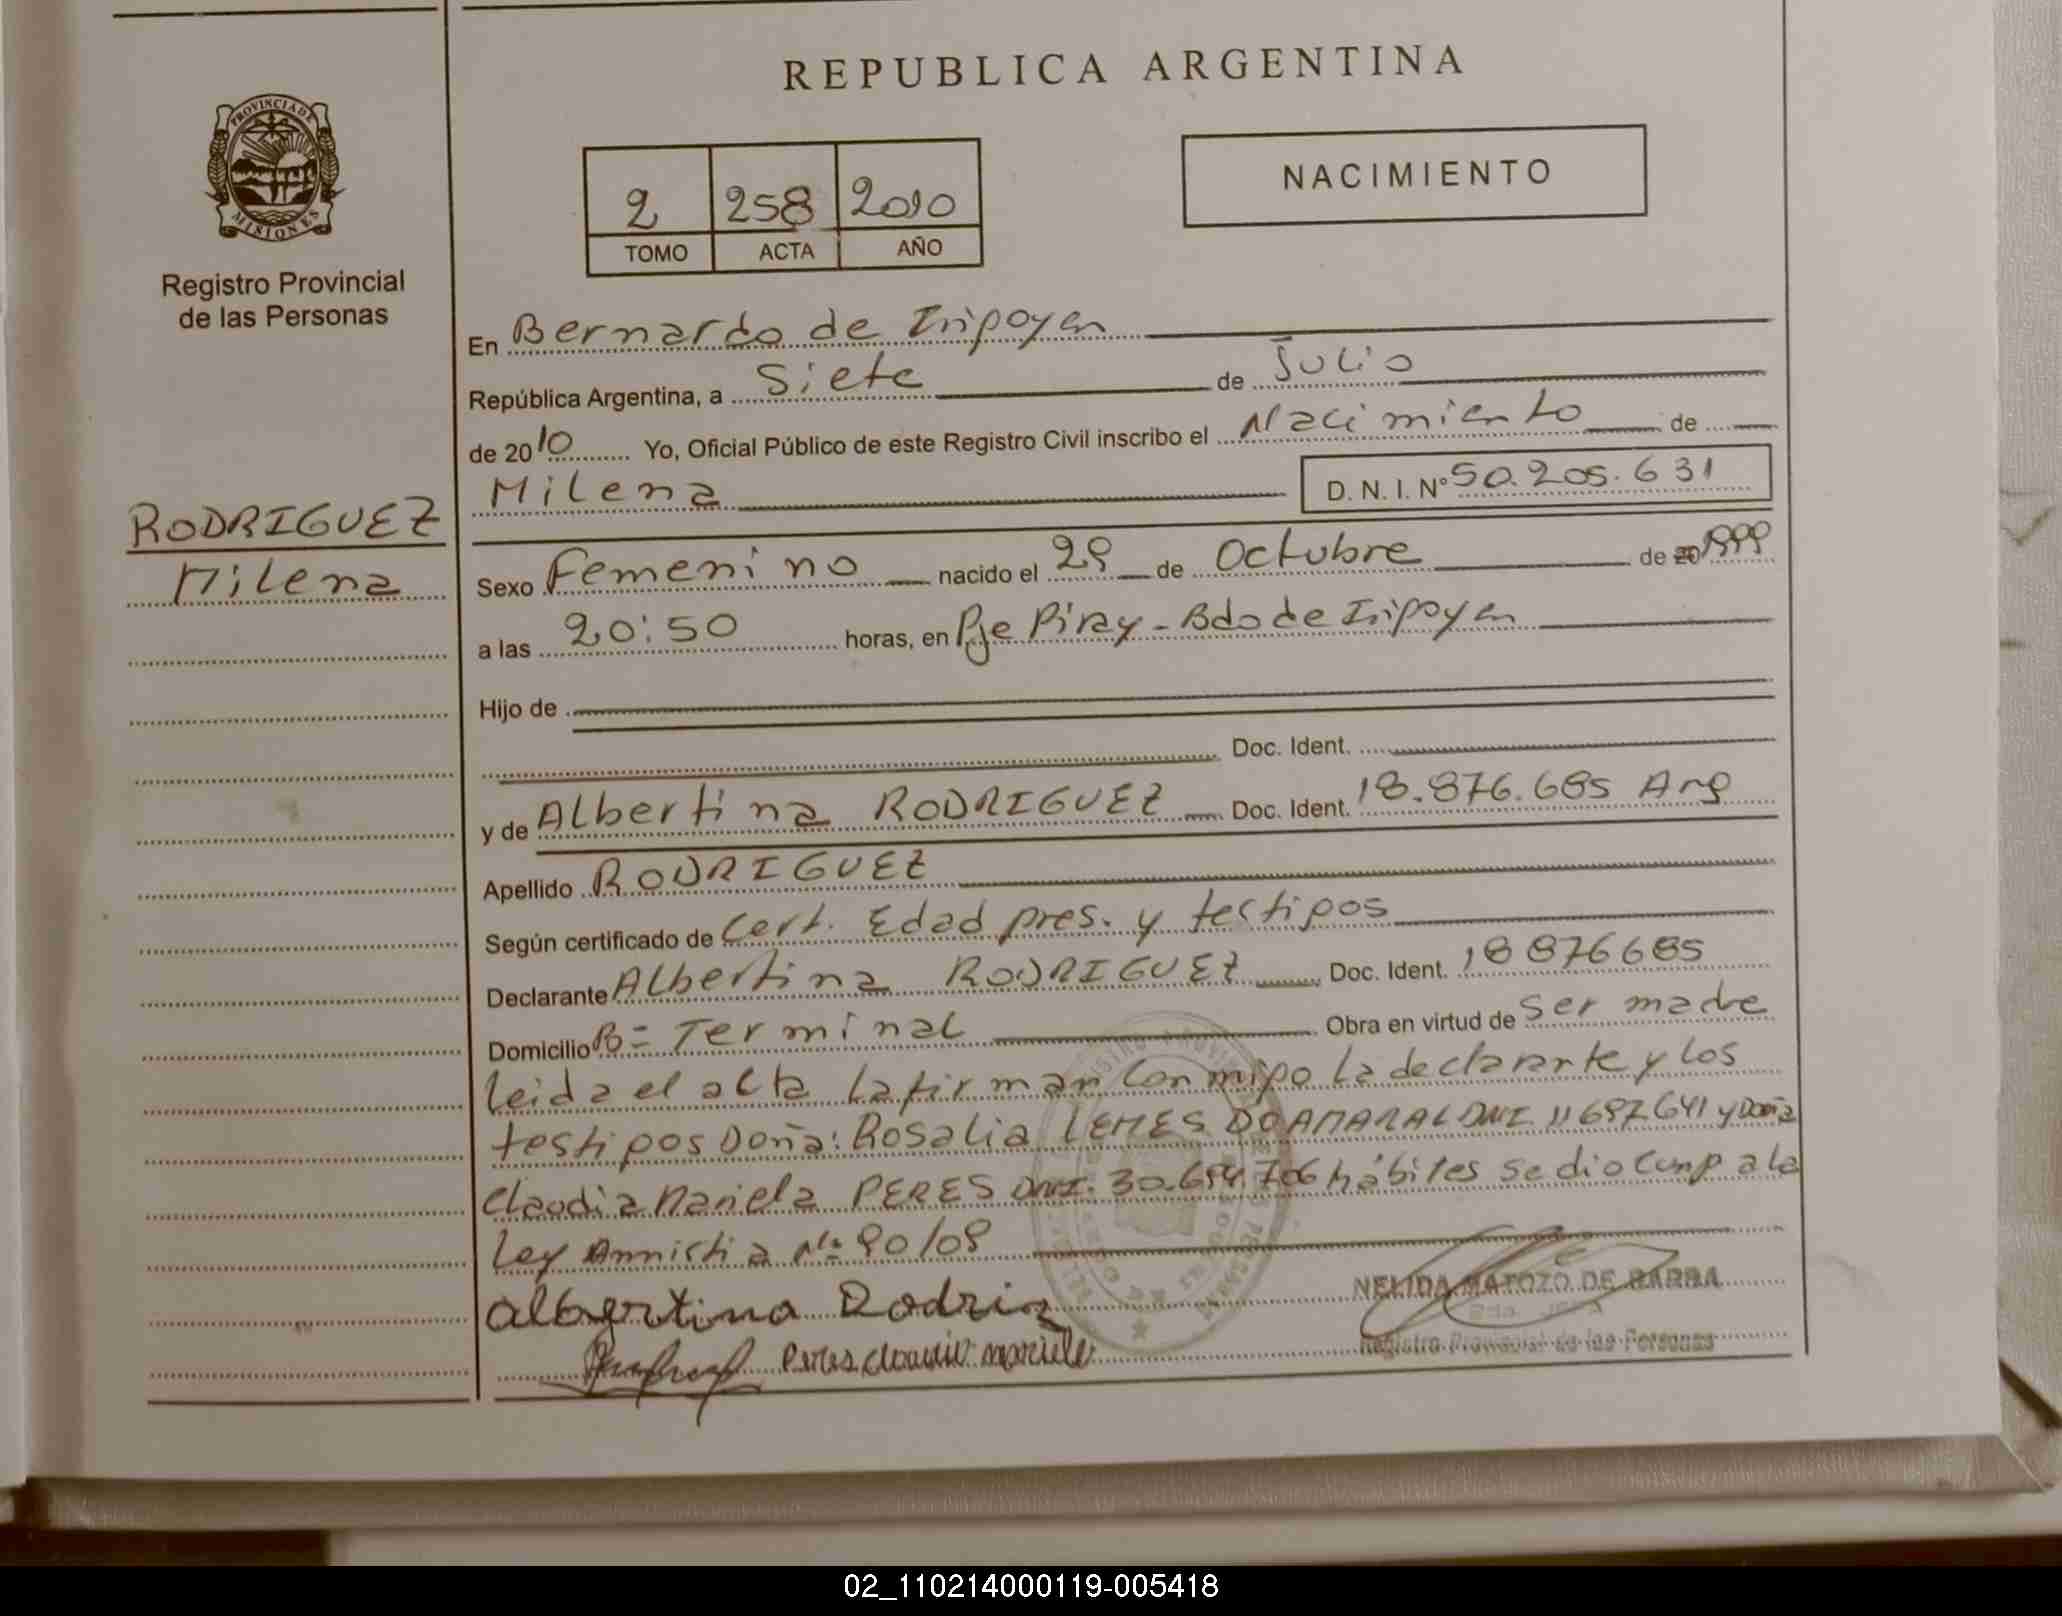 REPUBLICA ARGENTINA
PROVINCIA DE
MISIONES
Registro Provincial
de las Personas
2 258 2010
TOMO ACTA AÑO
NACIMIENTO
En Bernardo de Irigoyen
República Argentina, a Siete de Julio
de 2010 Yo, Oficial Público de este Registro Civil inscribo el Nacimiento de
Milena D. N. I. N° 50.205.631
RODRIGUEZ
Milena
Sexo Femenino nacido el 29 de Octubre de 20 1999
a las 20:50 horas, en Pje Piray - Bdo de Irigoyen
Hijo de
Doc. Ident.
y de Albertina RODRIGUEZ Doc. Ident. 18.876.685 Arg
Apellido RODRIGUEZ
Según certificado de Cert. Edad pres. y testigos
Declarante Albertina RODRIGUEZ Doc. Ident. 18 876685
Domicilio Bº= Terminal Obra en virtud de ser madre
Leida el acta la firman conmigo la declarante y los
testigos Doña: Rosalia LEMES DO AMARAL DNI. 11 697641 y Doña
Claudia Mariela PERES DNI. 30.694.706 hábiles se dio cump a la
Ley Amnistia Nº 90/09
albertina Rodriz
Peres claudia mariele
NELIDA MATOZO DE BARRA
Registro Provincial de las Personas
02_110214000119-005418